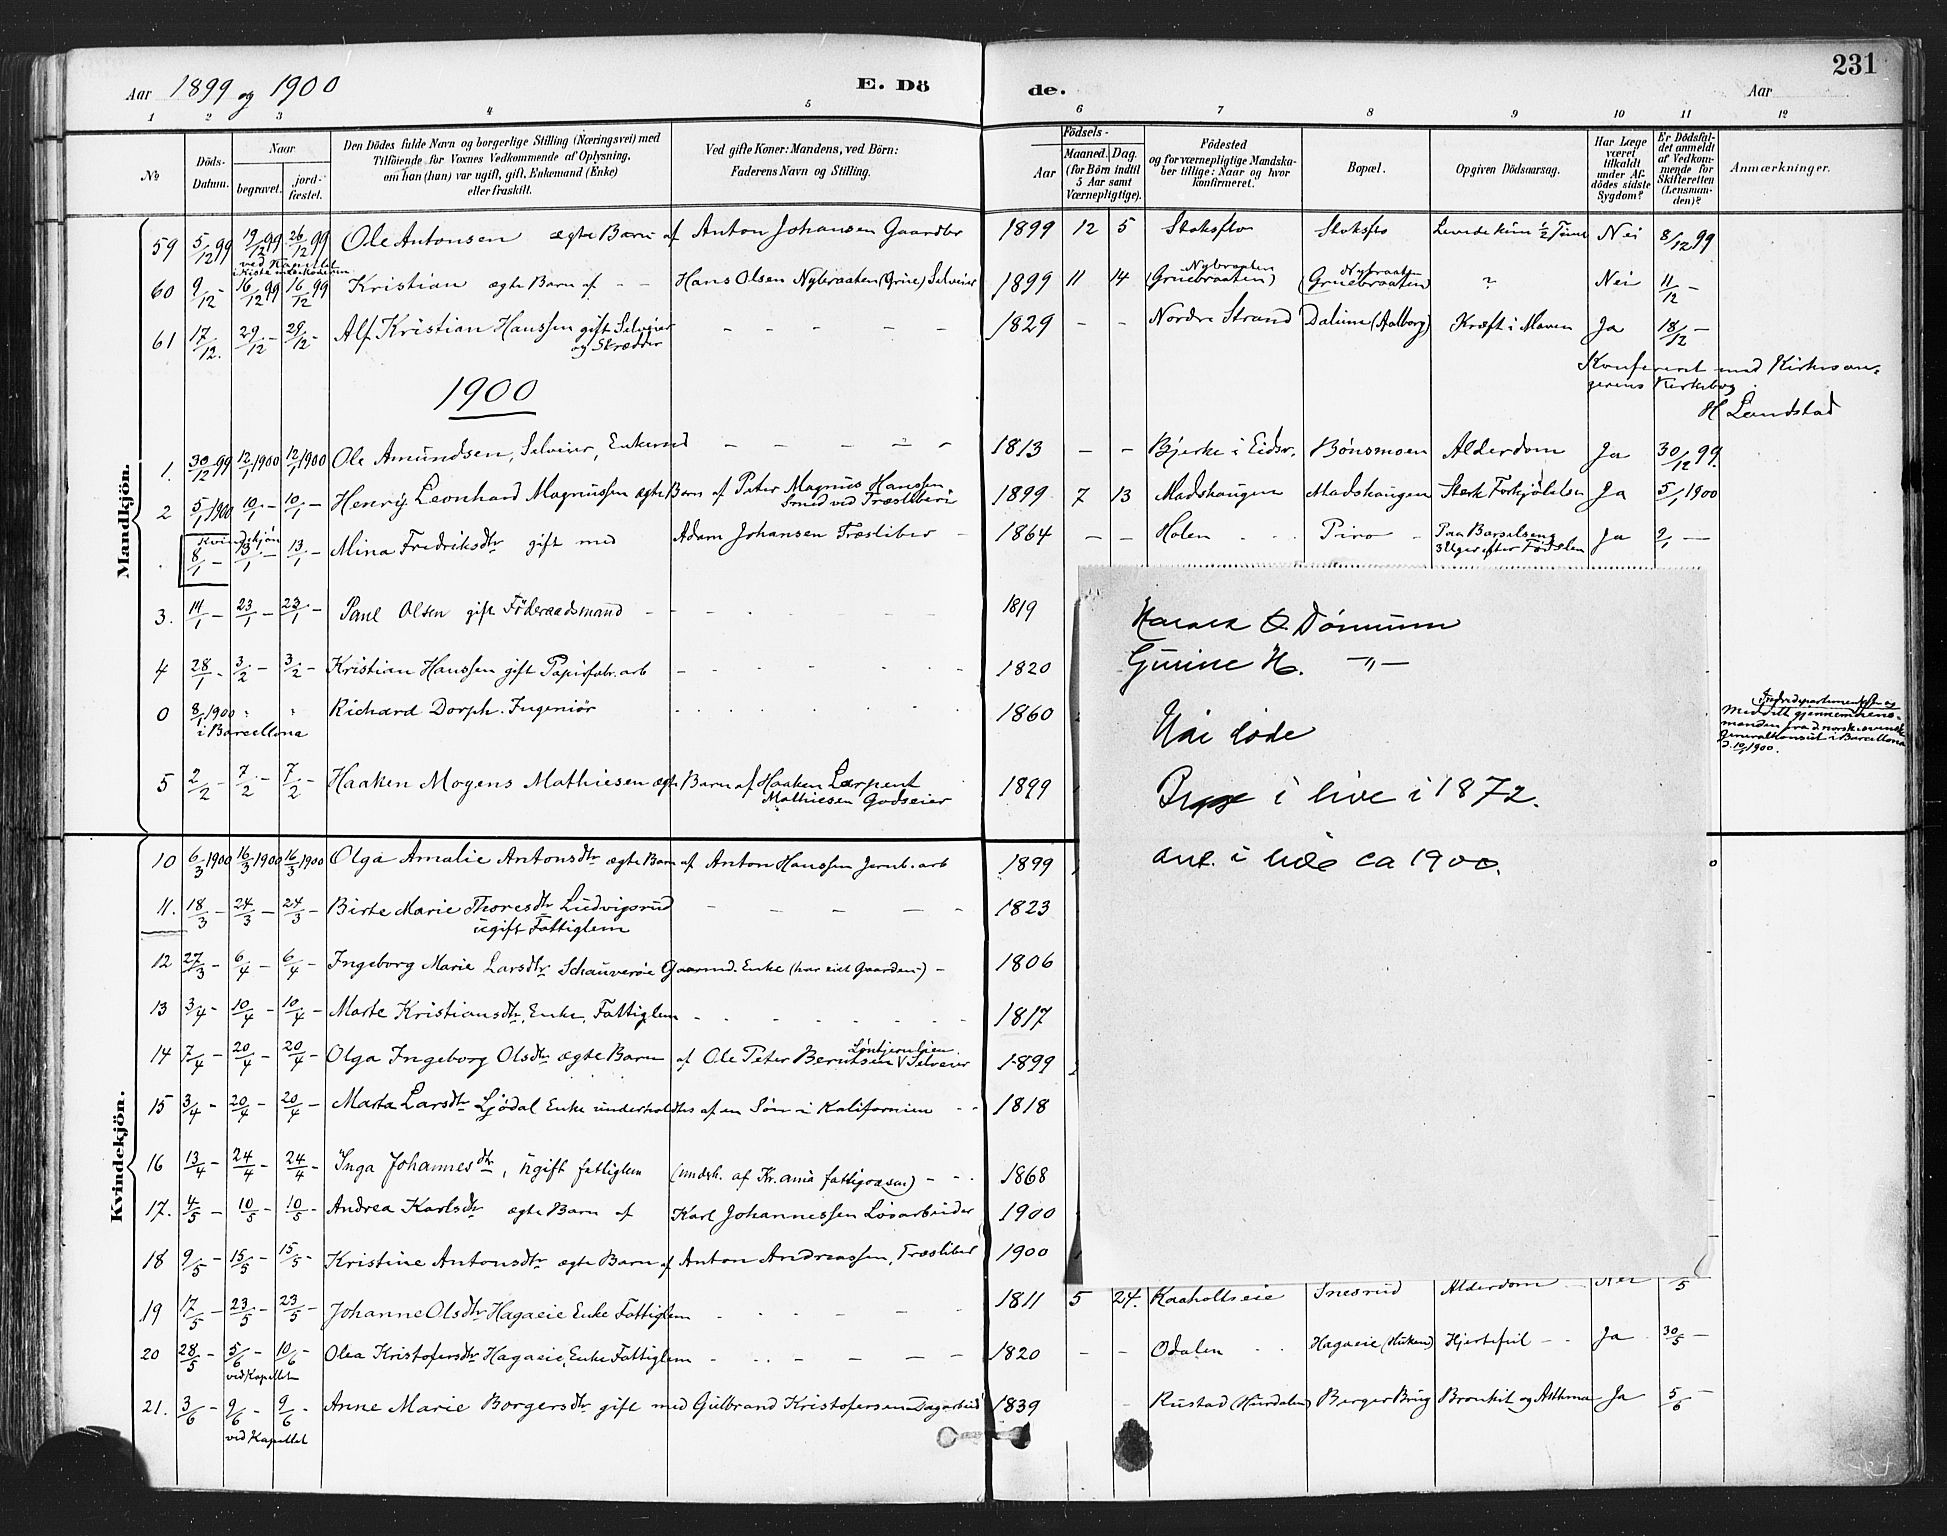 Aar 1899 og 1900
E. Dö
de.
Aar
231
1 2 3 4 5 6 7 8 9 10 11 12
No
Döds-Datum.
Naar
begravet.
jord-fæstet.
Den Dödes fulde Navn og borgerlige Stilling (Næringsvei) med
Tilföiende for Voxnes Vedkommende af Oplysning,
om han (hun) var ugift, gift, Enkemand (Enke)
eller fraskilt.
Ved gifte Koner: Mandens, ved Börn:
Faderens Navn og Stilling.
Födsels-
Aar
Maaned. Dag.
(for Börn indtil
5 Aar samt
Værnepligtige).
Födested
og for værnepligtige Mandska-
ber tillige: Naar og hvor
konfirmeret.
Bopæl.
Opgiven Dödsaarsag.
Har Læge
været
tilkaldt
under Af-
dödes sidste
Sygdom?
Er Dödsfal-
det anmeldt
af Vedkom-
mende for
Skifteretten
(Lensman-
den)?
Anmærkninger.
Mandkjön.
59 5/12 99 19/12 99 26/12 99 Ole Antonsen ægte Barn af Anton Johansen Gaardbr 1899 12 5 Stoksflo Stoksflo Levede kun 1/2 Time Nei 8/12 99
ved Kapellet
60 9/12 - 16/12 99 16/12 99 Kristian ægte Barn af - - Hans Olsen Nybraaten (Grue) Selveier 1899 11 14 Nybraaten (Gruebraaten) Nybraaten (Gruebraaten) ? Nei 11/12 -
61 17/12. 29/12 - 29/12 - Alf Kristian Hanssen gift Selveier og Skrædder - - - - 1829 - - Nordre Strand Dalum (Aalborg) Kræft i Maven Ja 18/12 -
Konfereret med Kirkesan-
gerens Kirkebog.
H Landstad
1900
1. 30/12 99 12/1 1900 12/1 1900 Ole Amundsen, Selveier, Enkemd - - - - - 1813 - - Bjerke i Eidsv. Bönsmoen Alderdom Ja 30/12 99.
2 5/1 1900 10/1 - 10/1 - Henrij Leonhard Magnussen ægte Barn af Peter Magnus Hanssen Smed ved Træsliberi 1899 7 13 Madshaugen Madshaugen Stærk Forkjölelse Ja 5/1 1900
Kvindekjön
8/1 - 13/1 - 13/1 - Mina Fredriksdtr gift med Adam Johansen Træsliber - 1864 - - Holen Piro - Paa Barselseng 3 Uger efter Födslen Ja 9/1 -
3. 14/1 - 23/1 - 23/1 - Paul Olsen gift Föderaadsmand - - 1819
4 28/1 - 3/2 - 3/2 - Kristian Hanssen gift Papirfabr. arb - 1820
0 8/1 1900 Richard Dorph. Ingeniör 1860
i Barcellona
Meddelt gjennem
fra d norsk svensk
Generalkonsul i Barcellona
1900.
5 2/2 - 7/2 - 7/2 - Haaken Mogens Mathiesen ægte Barn af Haaken Larpent Mathiesen Godseier 1899
Harald O. Dönnum
Gunine H. -"-
Når döde
Begge i live i 1872.
ant. i live ca 1900.
Kvindekjön.
10 6/3 1900 16/3 1900 16/3 1900 Olga Amalie Antonsdtr ægte Barn af Anton Hanssen Jernb. arb 1899
11. 18/3 - 24/3 - 24/3 - Birte Marie Thoresdtr Ludvigsrud ugift Fattiglem - - - - - 1823
12 27/3 - 6/4 - 6/4 - Ingeborg Marie Larsdtr Schauveröie Gaarmd. Enke (har eiet Gaarden) - 1806
13 3/4 - 10/4 - 10/4 - Marte Kristiansdtr, Enke, Fattiglem - - - - 1817
14 7/4 - 20/4 - 20/4 - Olga Ingeborg Olsdtr ægte Barn af Ole Peter Berntsen Selveier 1899
15 3/4 - 20/4 - 20/4 - Marta Larsdtr Ljödal Enke underholdtes af en Sön i Kalifornien - - 1818
16 13/4 - 24/4 - 24/4 - Inga Johannesdtr, ugift fattiglem (undrh. af Kr.ania fattigvæsen) - - 1868
17. 4/5 - 10/5 - 10/5 - Andrea Karlsdtr ægte Barn af Karl Johannessen Lösarbeider 1900
18 9/5 - 15/5 - 15/5 - Kristine Antonsdtr ægte Barn af Anton Andreassen, Træsliber 1900
19 17/5 - 23/5 - 23/5 - Johanne Olsdtr Hagaeie Enke Fattiglem - - - - 1811 5 24. Kraholtseie Inesrud Alderdom Nei /5
20 28/5 - 5/6 - 10/6 - Olea Kristofersdtr Hagaeie, Enke Fattiglem - - - - - 1820 - - Odalen Hagaeie (Huken) Hjertefeil - Ja 30/5 -
ved Kapellet
21. 3/6 - 9/6 - 9/6 - Anne Marie Borgersdtr gift med Gulbrand Kristofersen Dagarbeid 1839 - Rustad (Hurdalen) Berger Brug Bronkit og Asthma Ja 5/6 -
ved Kapellet